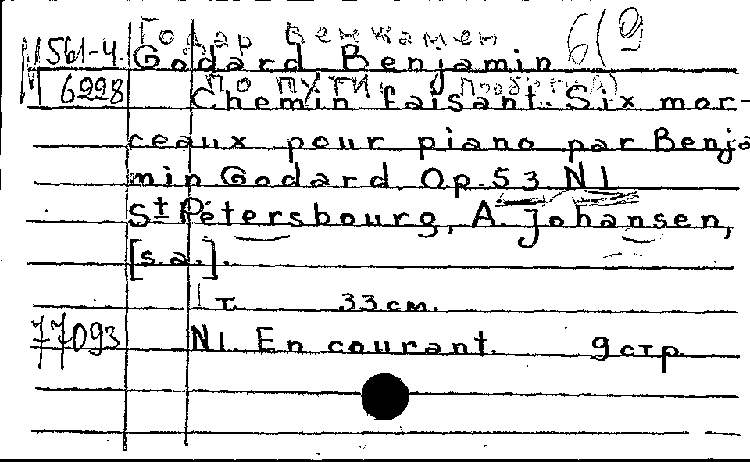 Годар Бенжамен 6(9
М 561-4. Godard Benjamin
6228 По пути
Chemin faisant. Six mor-
ceaux pour piano par Benja
min Godard. Op. 53 N1
St Pétersbourg, A. Johansen,
[s.a.].
1 т. 33 см.
77093 N1. En courant. 9 стр.